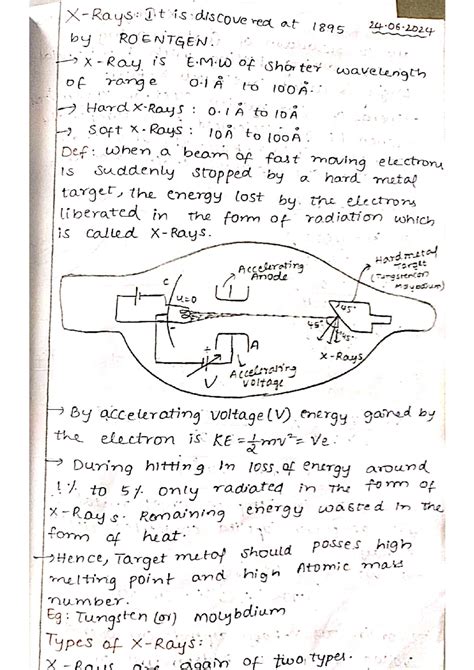 X-Rays: It is discovered at 1895 24.06.2024
by ROENTGEN.
→ X-Ray is E.M.W of shorter wavelength
of range 0.1Å to 100Å.
→ Hard X-Rays : 0.1Å to 10Å
→ Soft X-Rays : 10Å to 100Å
Def: When a beam of fast moving electrons
is suddenly stopped by a hard metal
target, the energy lost by the electrons
liberated in the form of radiation which
is called X-Rays.
Accelerating
Anode
Hard metal
Target
(Tungsten(or)
Molybdium)
C
u=0
45°
45°
45°
X-Rays
A
V
Accelerating
voltage
→ By accelerating voltage (V) energy gained by
the electron is KE = 1/2 mv² = Ve.
→ During hitting in loss of energy around
1% to 5% only radiated in the form of
X-Rays. Remaining energy wasted in the
form of heat.
→ Hence, Target metal should posses high
melting point and high Atomic mass
number.
Eg: Tungsten (or) Molybdium
Types of X-Rays:
X-Rays are again of two types.